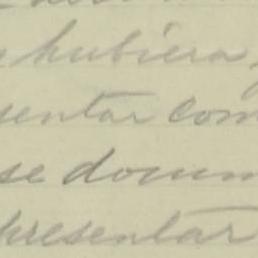 hubiera,
sentar com
se docum
presentar